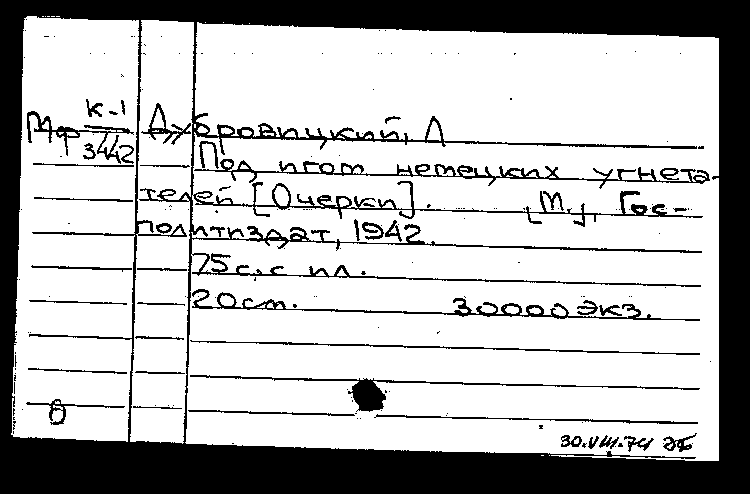 Мф К-1/3442 Дубровицкий, Л
Под игом немецких угнета-
телей [Очерки]. [М.], Гос-
политиздат, 1942.
75 с. с ил.
20 cm. 30000 экз.
0
30.VIII.74 ЭБ